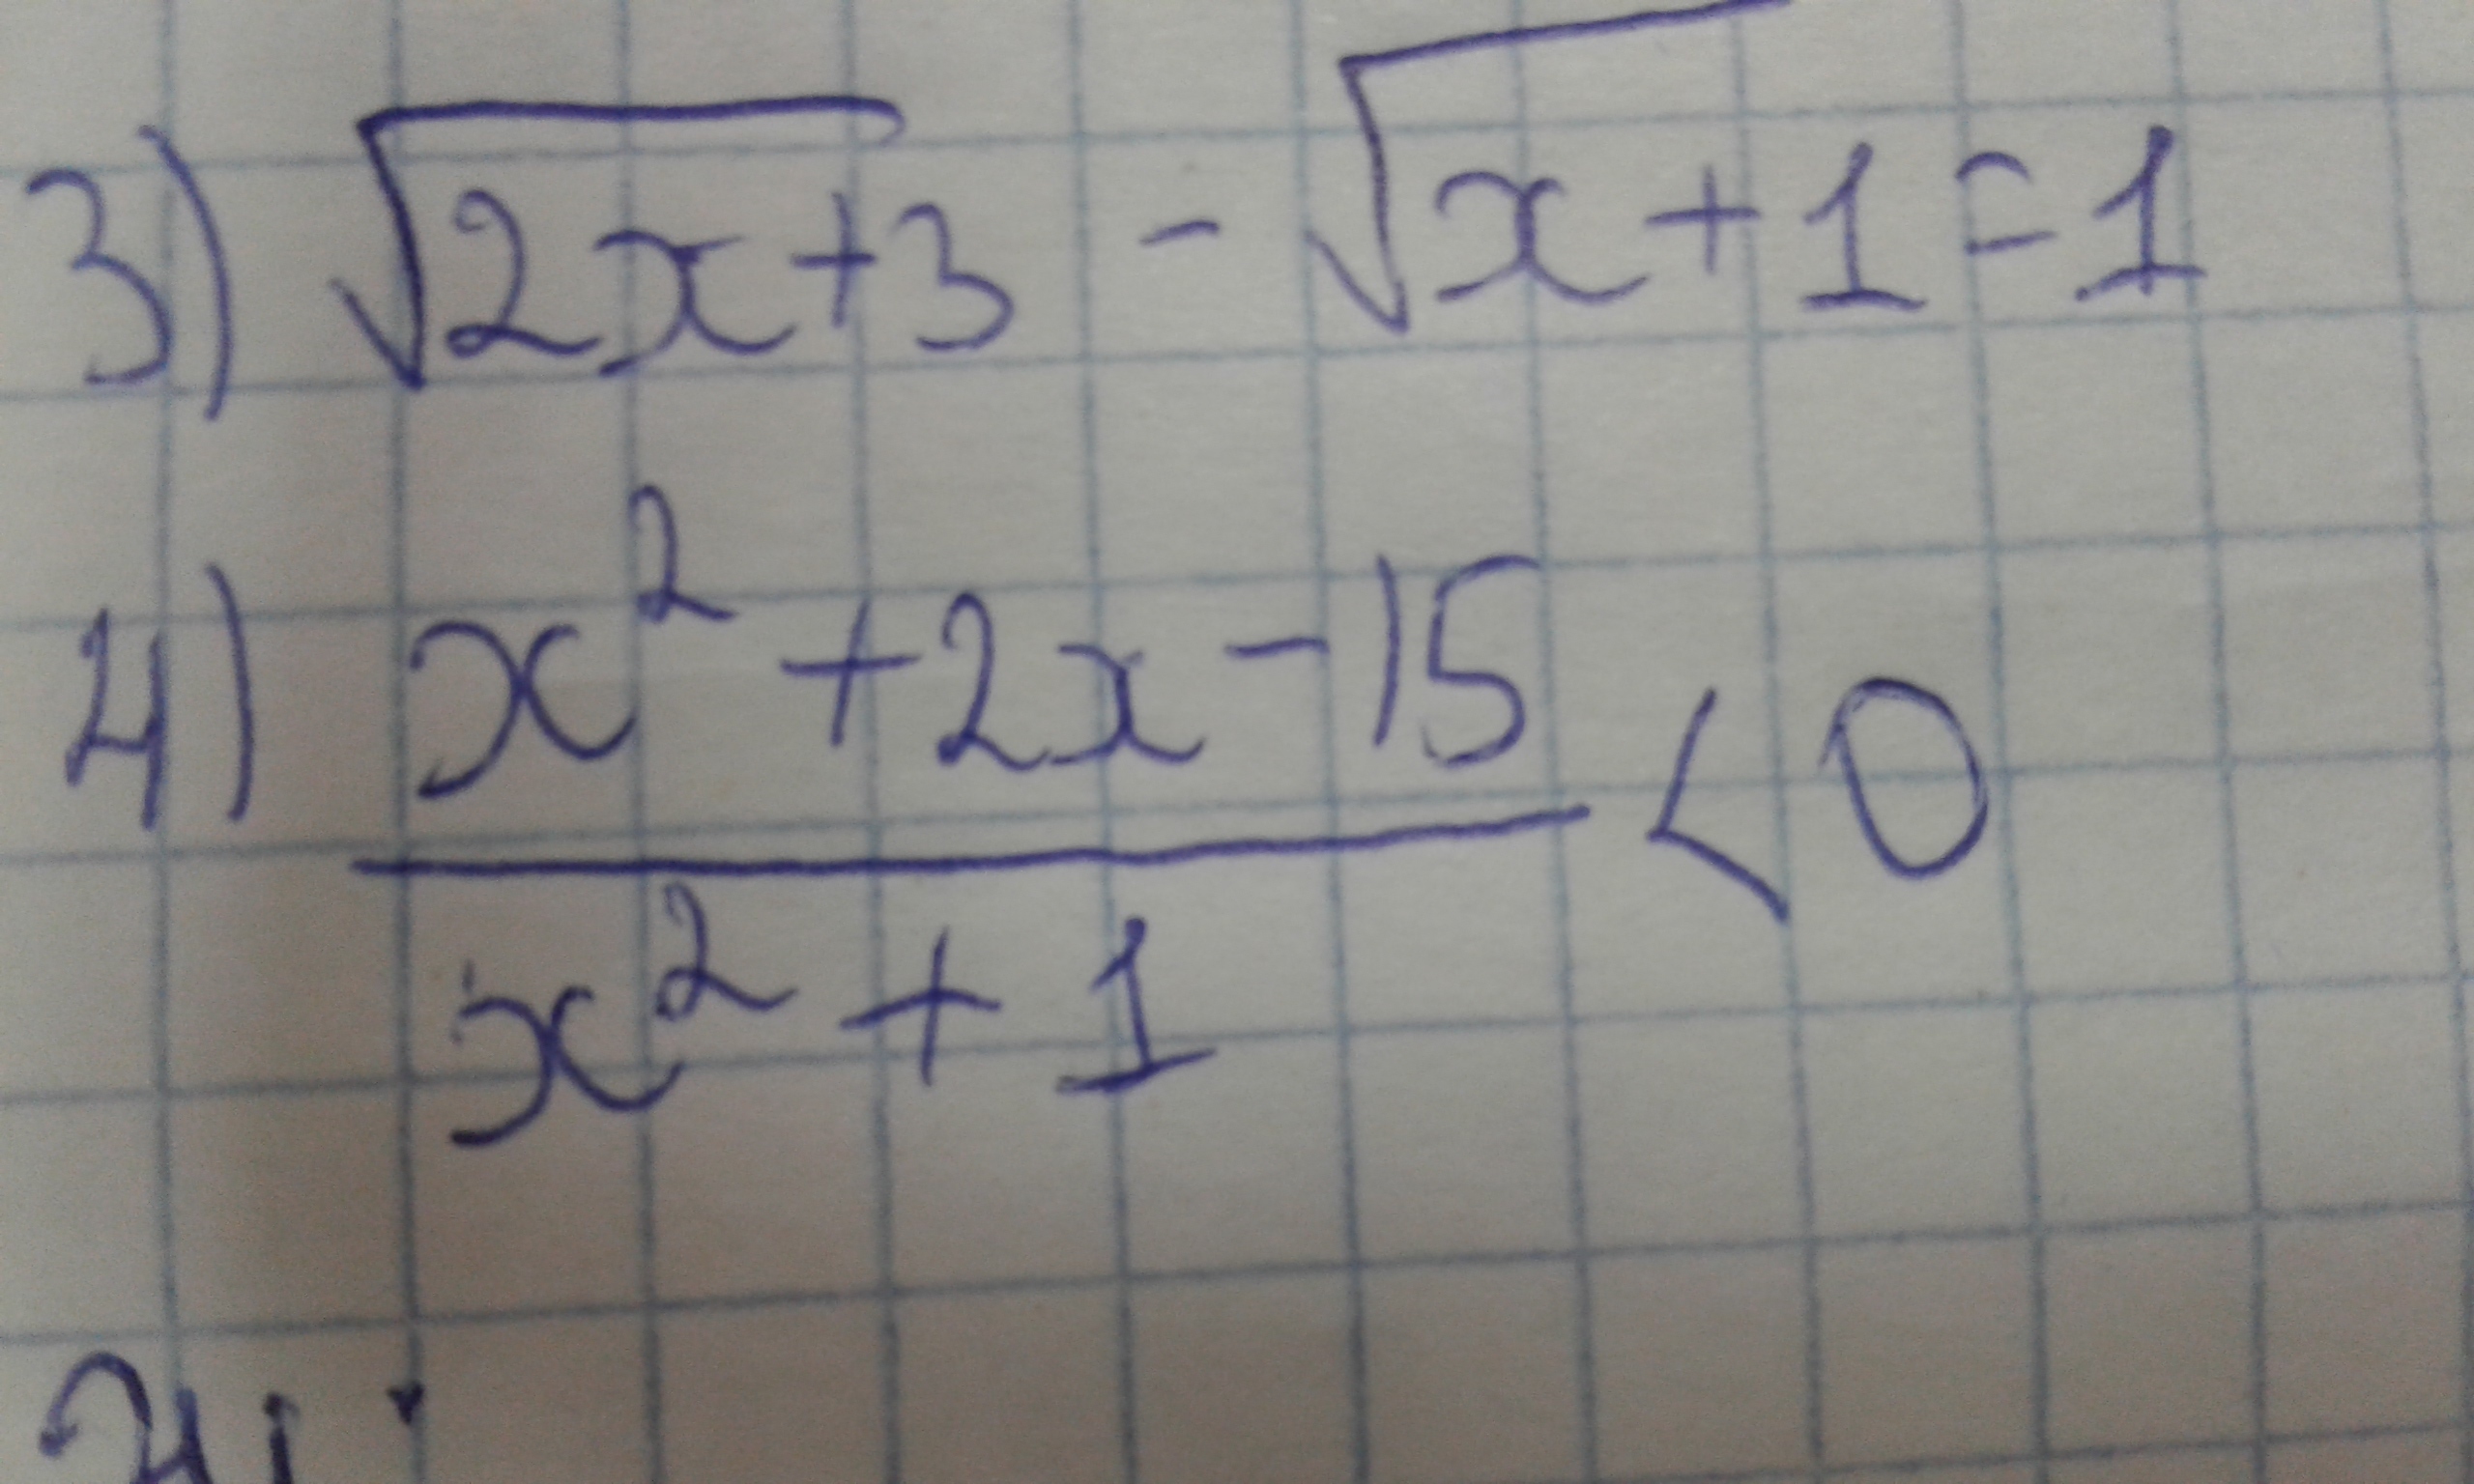 3) √2x+3 - √x+1 = 1
4) x² + 2x - 15
< 0
x² + 1